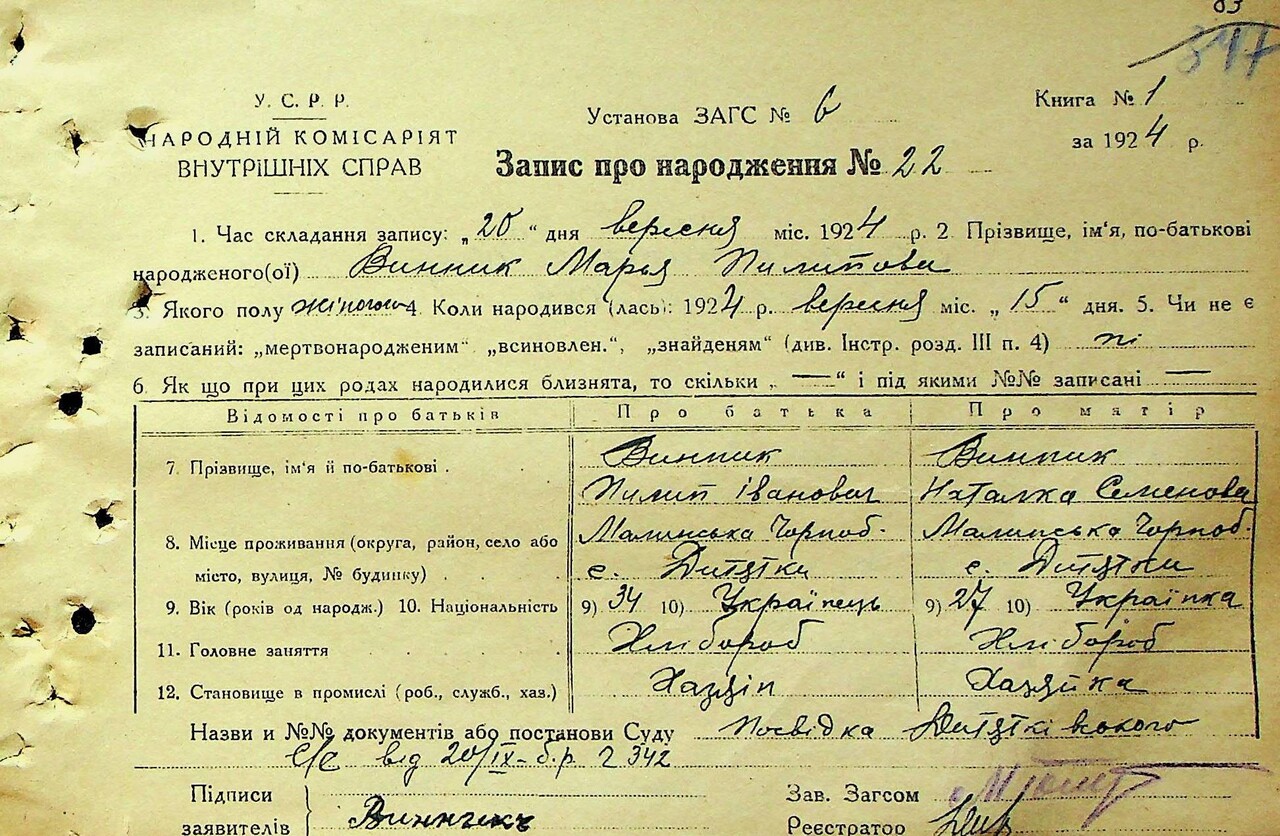 83
347
У. С. Р. Р.
НАРОДНІЙ КОМІСАРІЯТ
ВНУТРІШНІХ СПРАВ
Установа ЗАГС № 6
Книга № 1
за 1924 р.
Запис про народження № 22
1. Час складання запису: „20“ дня вересня міс. 1924 р. 2. Прізвище, ім'я, по-батькові
народженого(ої) Винник Марья Пилипова
3. Якого полу жіночого 4. Коли народився (лась): 1924 р. вересня міс. „15“ дня. 5. Чи не є
записаний: „мертвонародженим“ „всиновлен.“, „знайденям“ (див. Інстр. розд. III п. 4) ні
6. Як що при цих родах народилися близнята, то скільки „—“ і під якими №№ записані —
Відомості про батьків Про батька Про матір
7. Прізвище, ім'я й по-батькові . Винник Винник
Пилип Іванович Наталка Семенова
8. Місце проживання (округа, район, село або Малинська Чорноб. Малинська Чорноб.
місто, вулиця, № будинку) с. Дитятки с. Дитятки
9. Вік (років од народж.) 10. Національність 9) 34 10) Українець 9) 27 10) Українка
11. Головне заняття Хлібороб Хлібороб
12. Становище в промислі (роб., служб., хаз.) Хазяін Хазяйка
Назви и №№ документів або постанови Суду Посвідка Дитятківського
с/с від 20/IX- б.р. 342
Підписи
заявителів Винникъ
Зав. Загсом
Реєстратор